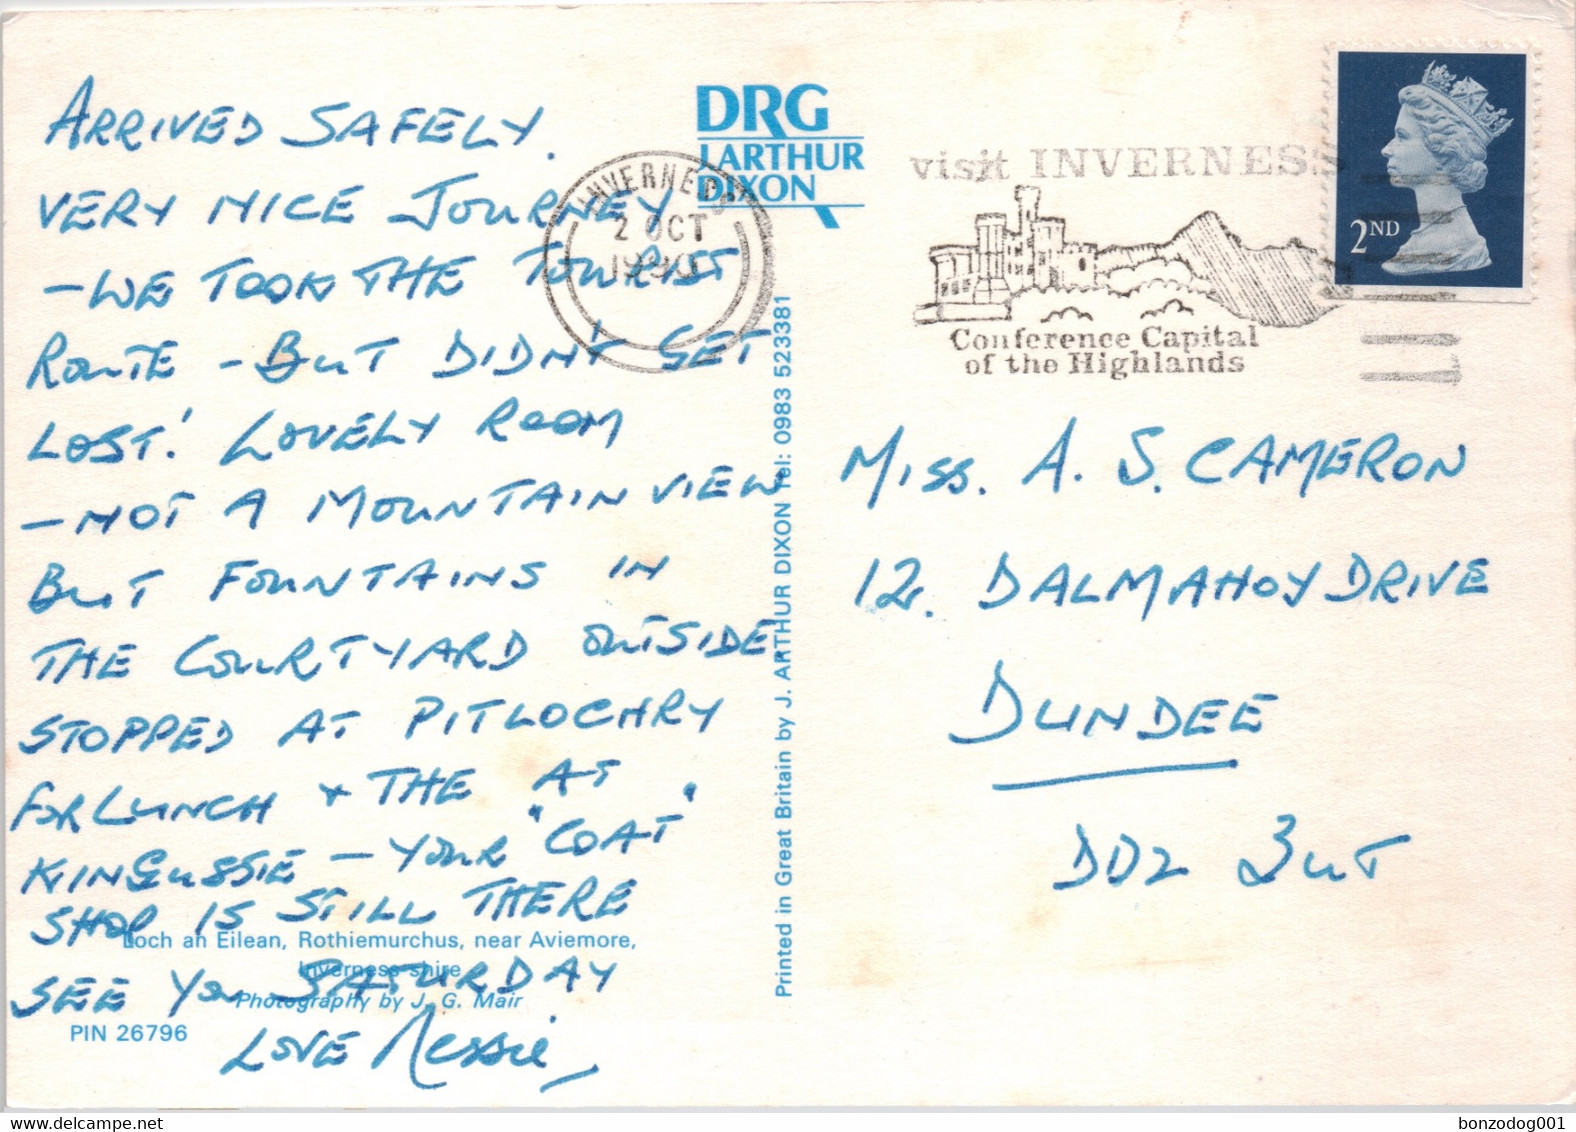 ARRIVED SAFELY.
VERY NICE JOURNEY
- WE TOOK THE TOURIST
ROUTE - BUT DIDN'T GET
LOST! LOVELY ROOM
- NOT A MOUNTAIN VIEW
BUT FOUNTAINS IN
THE COURTYARD OUTSIDE.
STOPPED AT PITLOCHRY
FOR LUNCH & THE AT
KINGUSSIE - YOUR "COAT"
SHOP IS STILL THERE
SEE YOU SATURDAY
LOVE Nessie
Loch an Eilean, Rothiemurchus, near Aviemore,
Inverness-shire
Photography by J. G. Mair
PIN 26796
DRG
J. ARTHUR
DIXON
Printed in Great Britain by J. ARTHUR DIXON Tel: 0983 523381
INVERNESS
2 OCT
visit INVERNESS
Conference Capital
of the Highlands
2ND
MISS. A. S. CAMERON
12. DALMAHOY DRIVE
DUNDEE
DD2 3UT
delcampe.net
bonzodog001